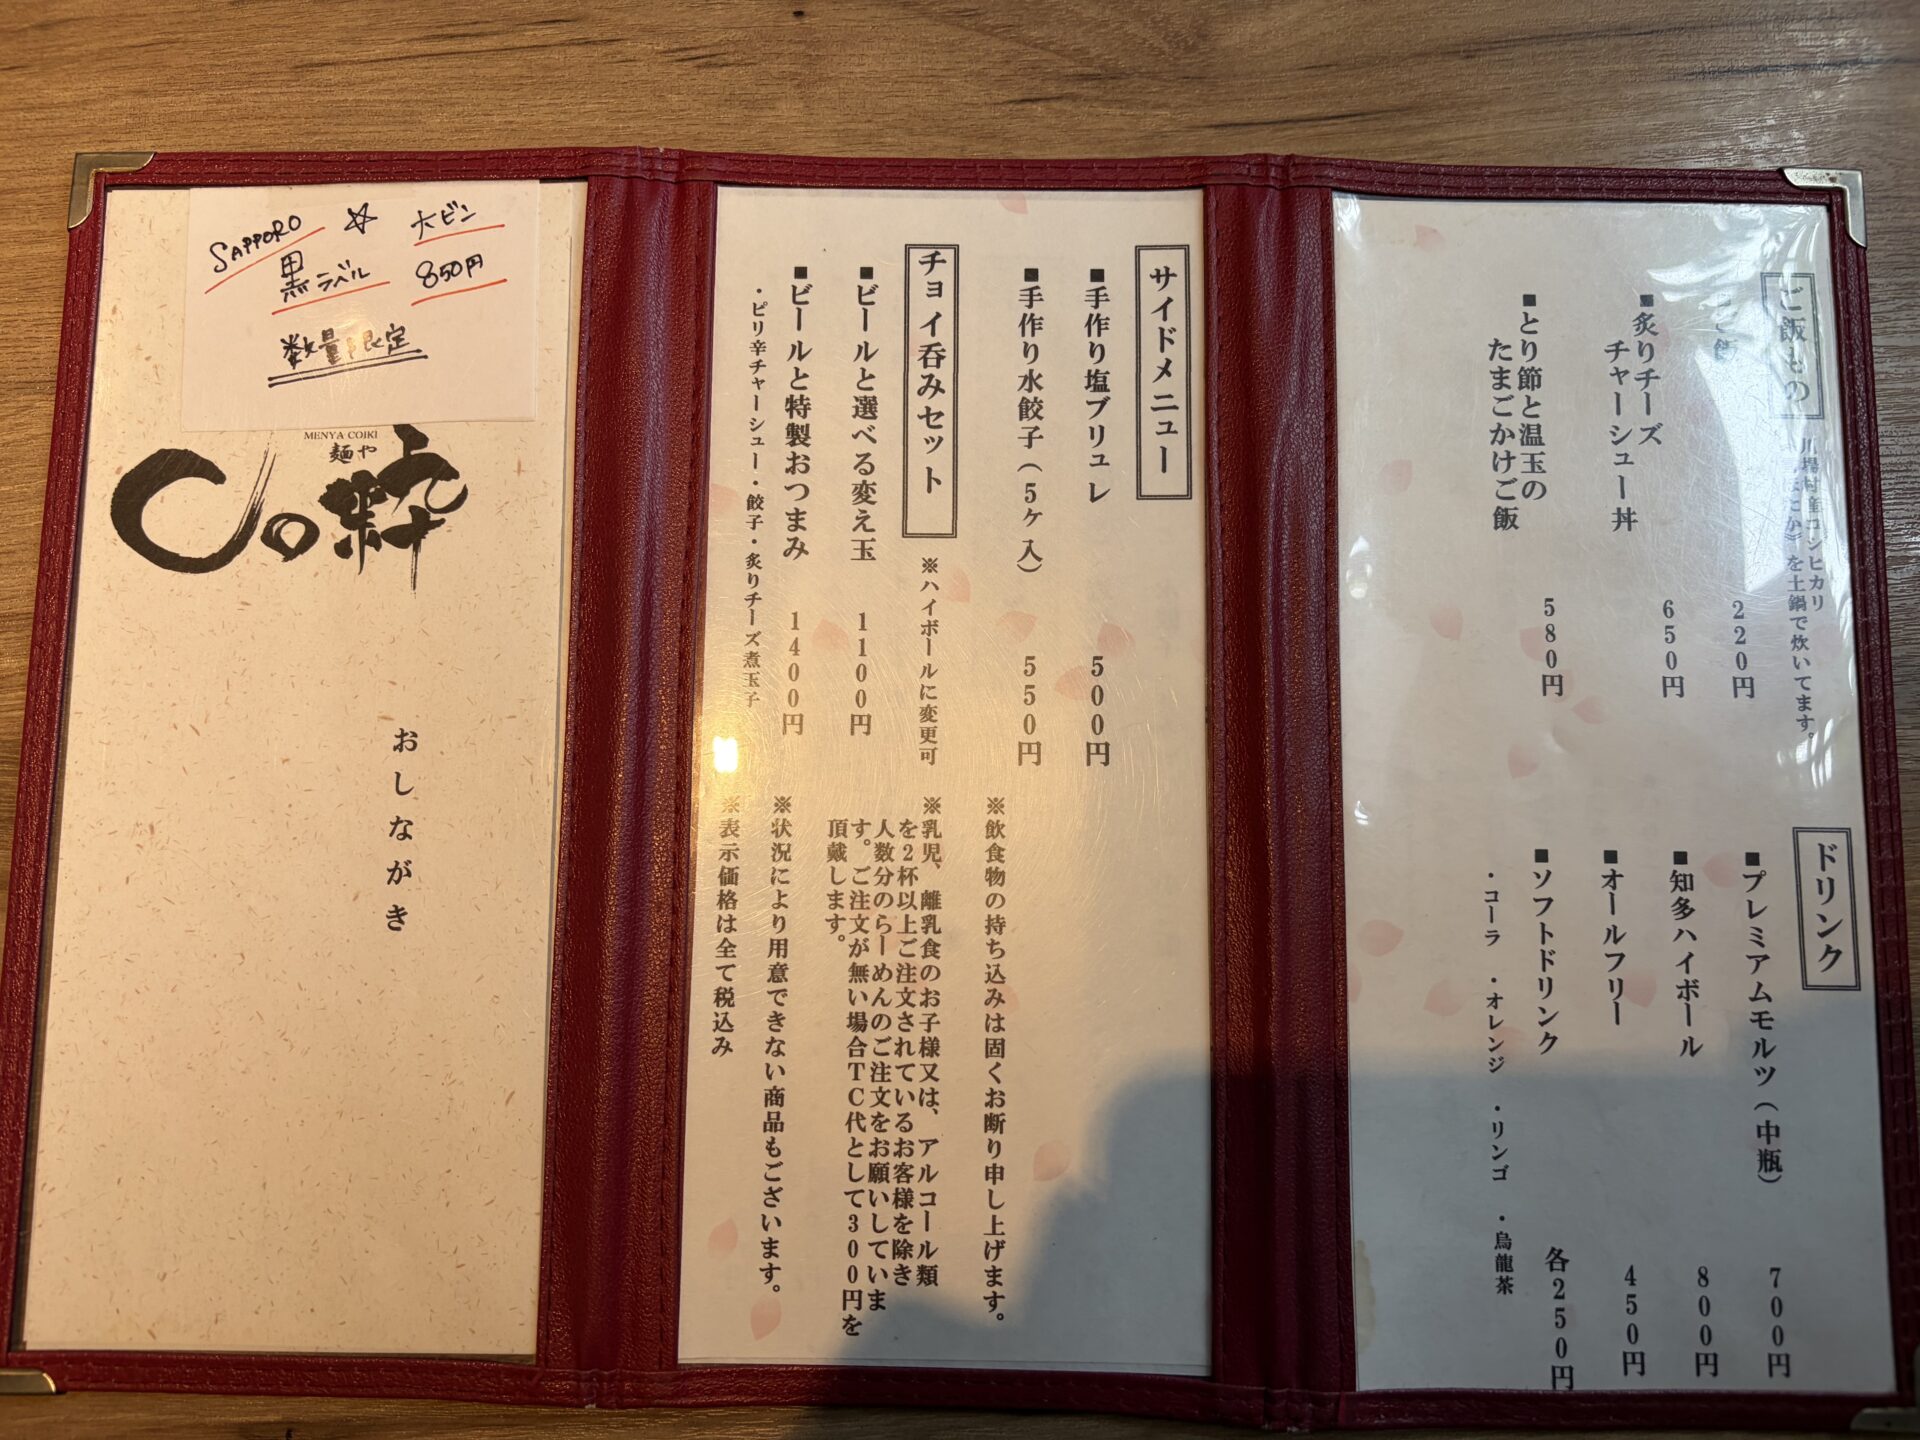 ご飯もの
川場村産コシヒカリ
を土鍋で炊いてます。
■ご飯 220円
■炙りチーズ
チャーシュー丼 650円
■とり節と温玉の
たまごかけご飯 580円
ドリンク
■プレミアムモルツ（中瓶） 700円
■知多ハイボール 800円
■オールフリー 450円
■ソフトドリンク 各250円
・コーラ ・オレンジ ・リンゴ ・烏龍茶
サイドメニュー
■手作り塩ブリュレ 500円
■手作り水餃子（5ヶ入） 550円
チョイ呑みセット
※ハイボールに変更可
■ビールと選べる変え玉 1100円
■ビールと特製おつまみ 1400円
・ピリ辛チャーシュー・餃子・炙りチーズ煮玉子
※飲食物の持ち込みは固くお断り申し上げます。
※乳児、離乳食のお子様又は、アルコール類
を2杯以上ご注文されているお客様を除き
人数分のらーめんのご注文をお願いしていま
す。ご注文が無い場合TC代として300円を
頂戴します。
※状況により用意できない商品もございます。
※表示価格は全て税込み
SAPPORO ☆ 大ビン
黒ラベル 850円
数量限定
MENYA COIKI
麺や
CO粋
おしながき